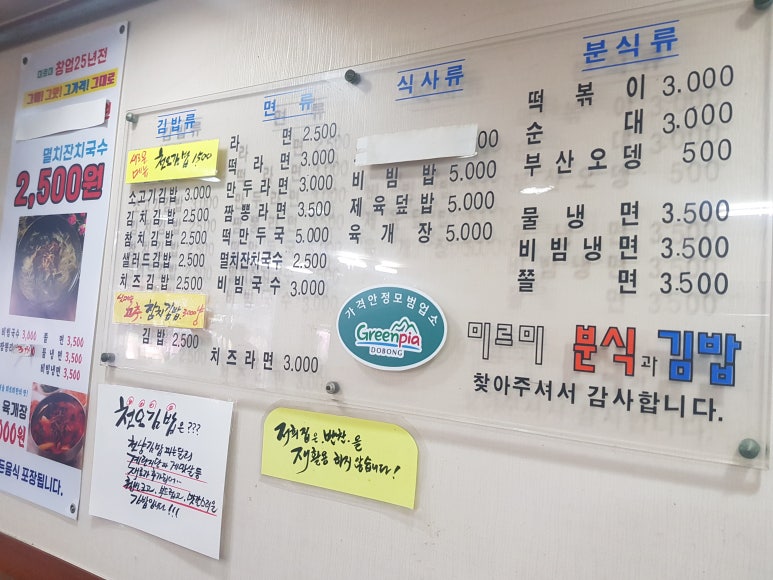 미르미 창업25년전
그때! 그맛! 그가격! 그대로
멸치잔치국수
2,500원
비빔국수 3,000
쫄 면 3,500
물 냉 면 3,500
비빔냉면 3,500
육개장
000원
든음식 포장됩니다.
김밥류
새로운 메뉴 천오김밥 1500
소고기김밥 3.000
김치김밥 2.500
참치김밥 2.500
샐러드김밥 2.500
치즈김밥 2.500
고추.참치김밥 3.000냥
김밥 2.500
면 류
라 면 2.500
떡 라 면 3.000
만두라면 3.000
짬뽕라면 3.500
떡만두국 5.000
멸치잔치국수 2.500
비빔국수 3.000
치즈라면 3.000
식사류
00
비빔밥 5.000
제육덮밥 5.000
육개장 5.000
분식류
떡볶이 3.000
순 대 3.000
부산오뎅 500
물냉면 3.500
비빔냉면 3.500
쫄 면 3.500
가격안정모범업소
Greenpia
DOBONG
미르미 분식과 김밥
찾아주셔서 감사합니다.
천오김밥은???
계란지단과 게맛살등
김밥입니다!!!
저희집은 반찬을
재활용 하지 않습니다!